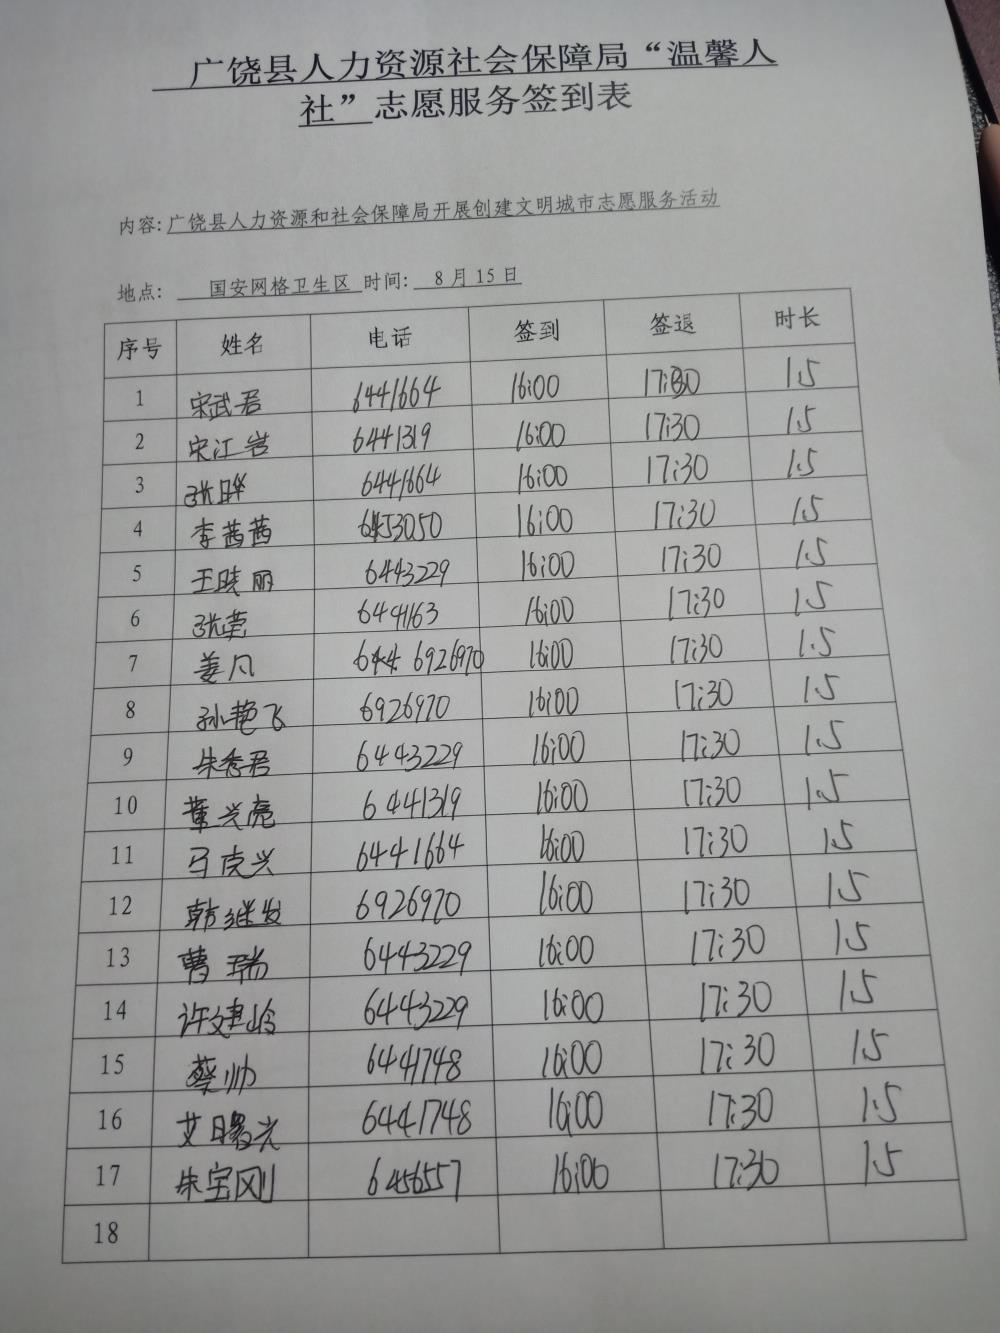 广饶县人力资源社会保障局“温馨人
社”志愿服务签到表
内容:广饶县人力资源和社会保障局开展创建文明城市志愿服务活动
地点: 国安网格卫生区 时间: 8月15日
序号 姓名 电话 签到 签退 时长
1 宋武君 6441664 16:00 17:30 1.5
2 宋江岩 6441319 16:00 17:30 1.5
3 张晔 6441664 16:00 17:30 1.5
4 李茜茜 6453050 16:00 17:30 1.5
5 王晓丽 6443229 16:00 17:30 1.5
6 张莹 6441163 16:00 17:30 1.5
7 姜凡 6926970 16:00 17:30 1.5
8 孙艳飞 6926970 16:00 17:30 1.5
9 朱秀君 6443229 16:00 17:30 1.5
10 董兴亮 6441319 16:00 17:30 1.5
11 马克兴 6441664 16:00 17:30 1.5
12 韩继发 6926970 16:00 17:30 1.5
13 曹瑞 6443229 16:00 17:30 1.5
14 许建岭 6443229 16:00 17:30 1.5
15 蔡帅 6441748 16:00 17:30 1.5
16 艾曙光 6441748 16:00 17:30 1.5
17 朱宝刚 6456557 16:00 17:30 1.5
18